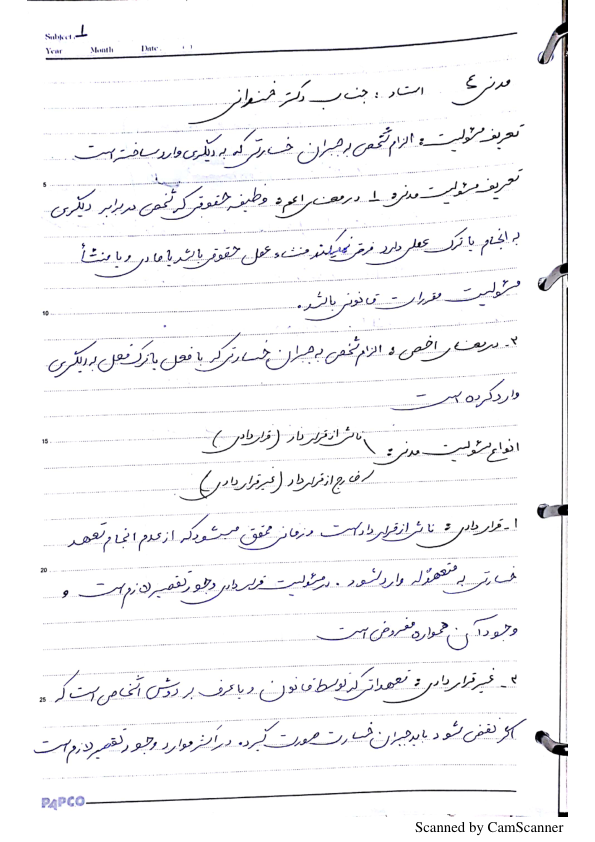 Subject: 1
Year Month Date. ( )
مدنی ٤ استاد : جناب دکتر
تعریف مسئولیت : الزام شخص به جبران خسارتی که به دیگری وارد ساخته است
5
تعریف مسئولیت مدنی : 1- در معنای اعم : وظیفه حقوقی که شخص در برابر دیگری
به انجام یا ترک عملی دارد فرقی نمیکند منشاء عمل حقوقی باشد یا مادی و یا منشأ
مسئولیت مقررات قانونی باشد.
10
2- در معنای اخص : الزام شخص به جبران خسارتی که با فعل یا ترک فعل به دیگری
وارد کرده است
انواع مسئولیت مدنی : ناشی از قرارداد (قراردادی)
15
خارج از قرارداد (غیر قراردادی)
1- قراردادی : ناشی از قرارداد است و زمانی محقق میشود که از عدم انجام تعهد
20
خسارتی به متعهدله وارد شود. در مسئولیت قراردادی وجود تقصیر لازم است و
وجود آن همواره مفروض است
2- غیر قراردادی : تعهداتی که توسط قانون و یا عرف بر دوش اشخاص است که
25
اگر نقض شود باید جبران خسارت صورت گیرد. در اکثر موارد وجود تقصیر لازم است
PAPCO
Scanned by CamScanner